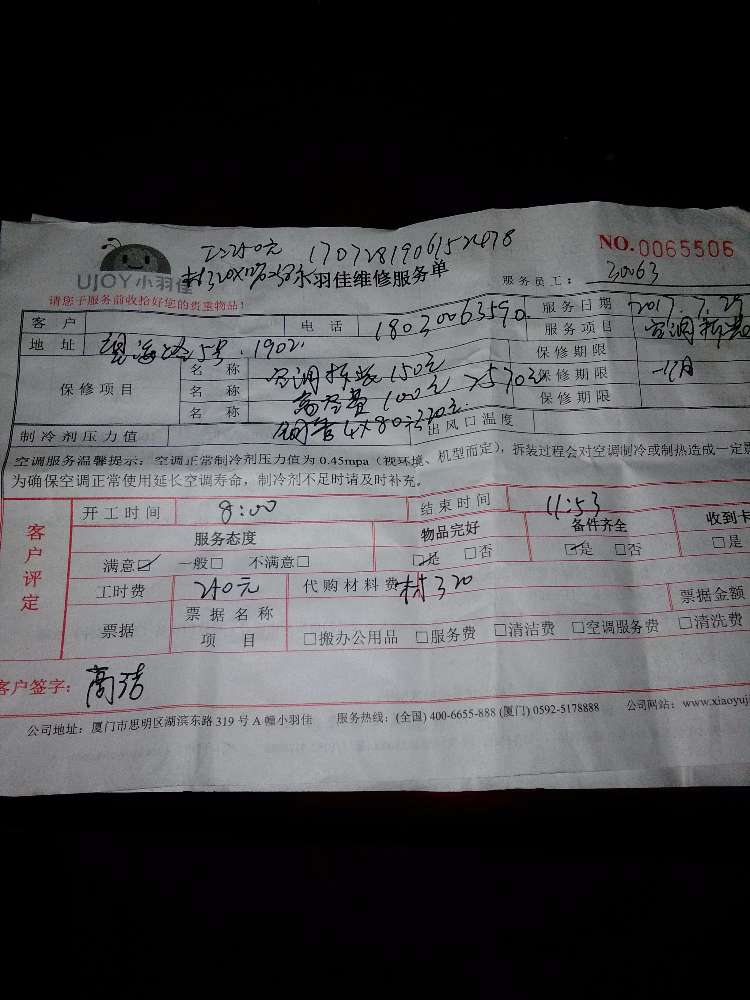 1707281906152478
NO.0065506
UJOY小羽佳 小羽佳维修服务单
服务员工： 20063
请您于服务前收拾好您的贵重物品！
客 户 电 话 18030063590 服务日期 2017.7.29
地 址 望海路5号.1902. 服务项目 空调拆装
保修项目 名 称 空调拆装150元 保修期限
名 称 高空费100元 >570元 保修期限 一个月
名 称 铜管4×80=320元 保修期限
制冷剂压力值 出风口温度
空调服务温馨提示：空调正常制冷剂压力值为 0.45mpa（视环境、机型而定），拆装过程会对空调制冷或制热造成一定影
为确保空调正常使用延长空调寿命，制冷剂不足时请及时补充。
客户评定
开工时间 8:00 结束时间 11:53
服务态度 物品完好 备件齐全 收到卡
满意☑ 一般□ 不满意□ ☑是 □否 ☑是 □否 □是
工时费 250元 代购材料费 材320
票据 票据名称 票据金额
项 目 □搬办公用品 □服务费 □清洁费 □空调服务费 □清洗费
客户签字：
公司地址：厦门市思明区湖滨东路 319 号 A 幢小羽佳 服务热线：(全国) 400-6655-888 (厦门) 0592-5178888 公司网站：www.xiaoyuj